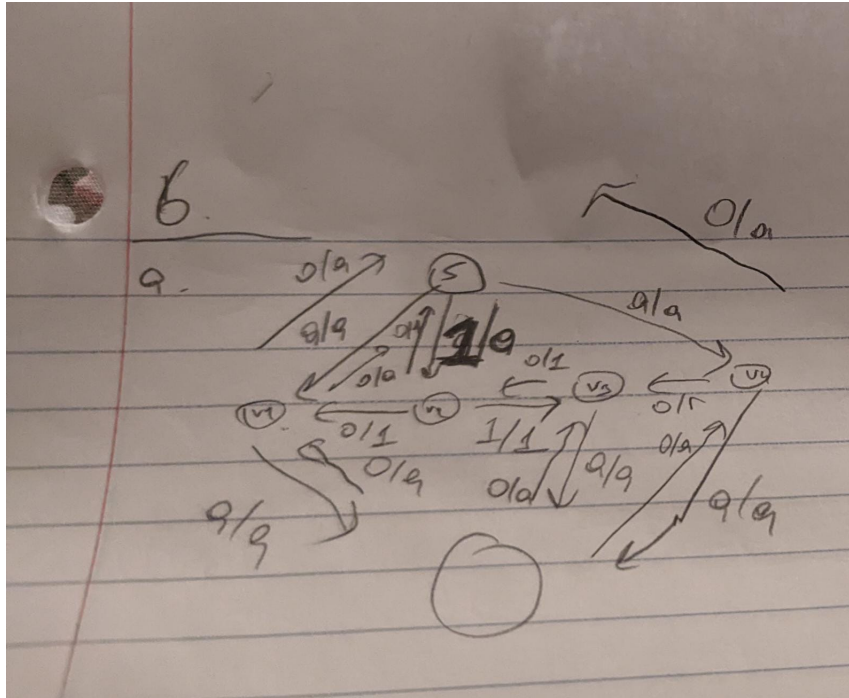 6.
a.
0/a
0/a
S
a/a
a/a
1/a
0/a
0/1
V1
V2
V3
V4
0/1
1/1
0/a
0/a
a/a
0/a
a/a
a/a